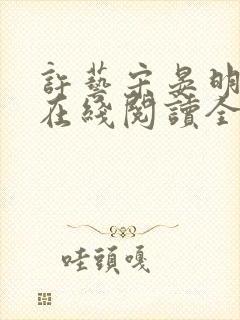 許藝宗晏明
在綫閱讀全
哇頭嘎